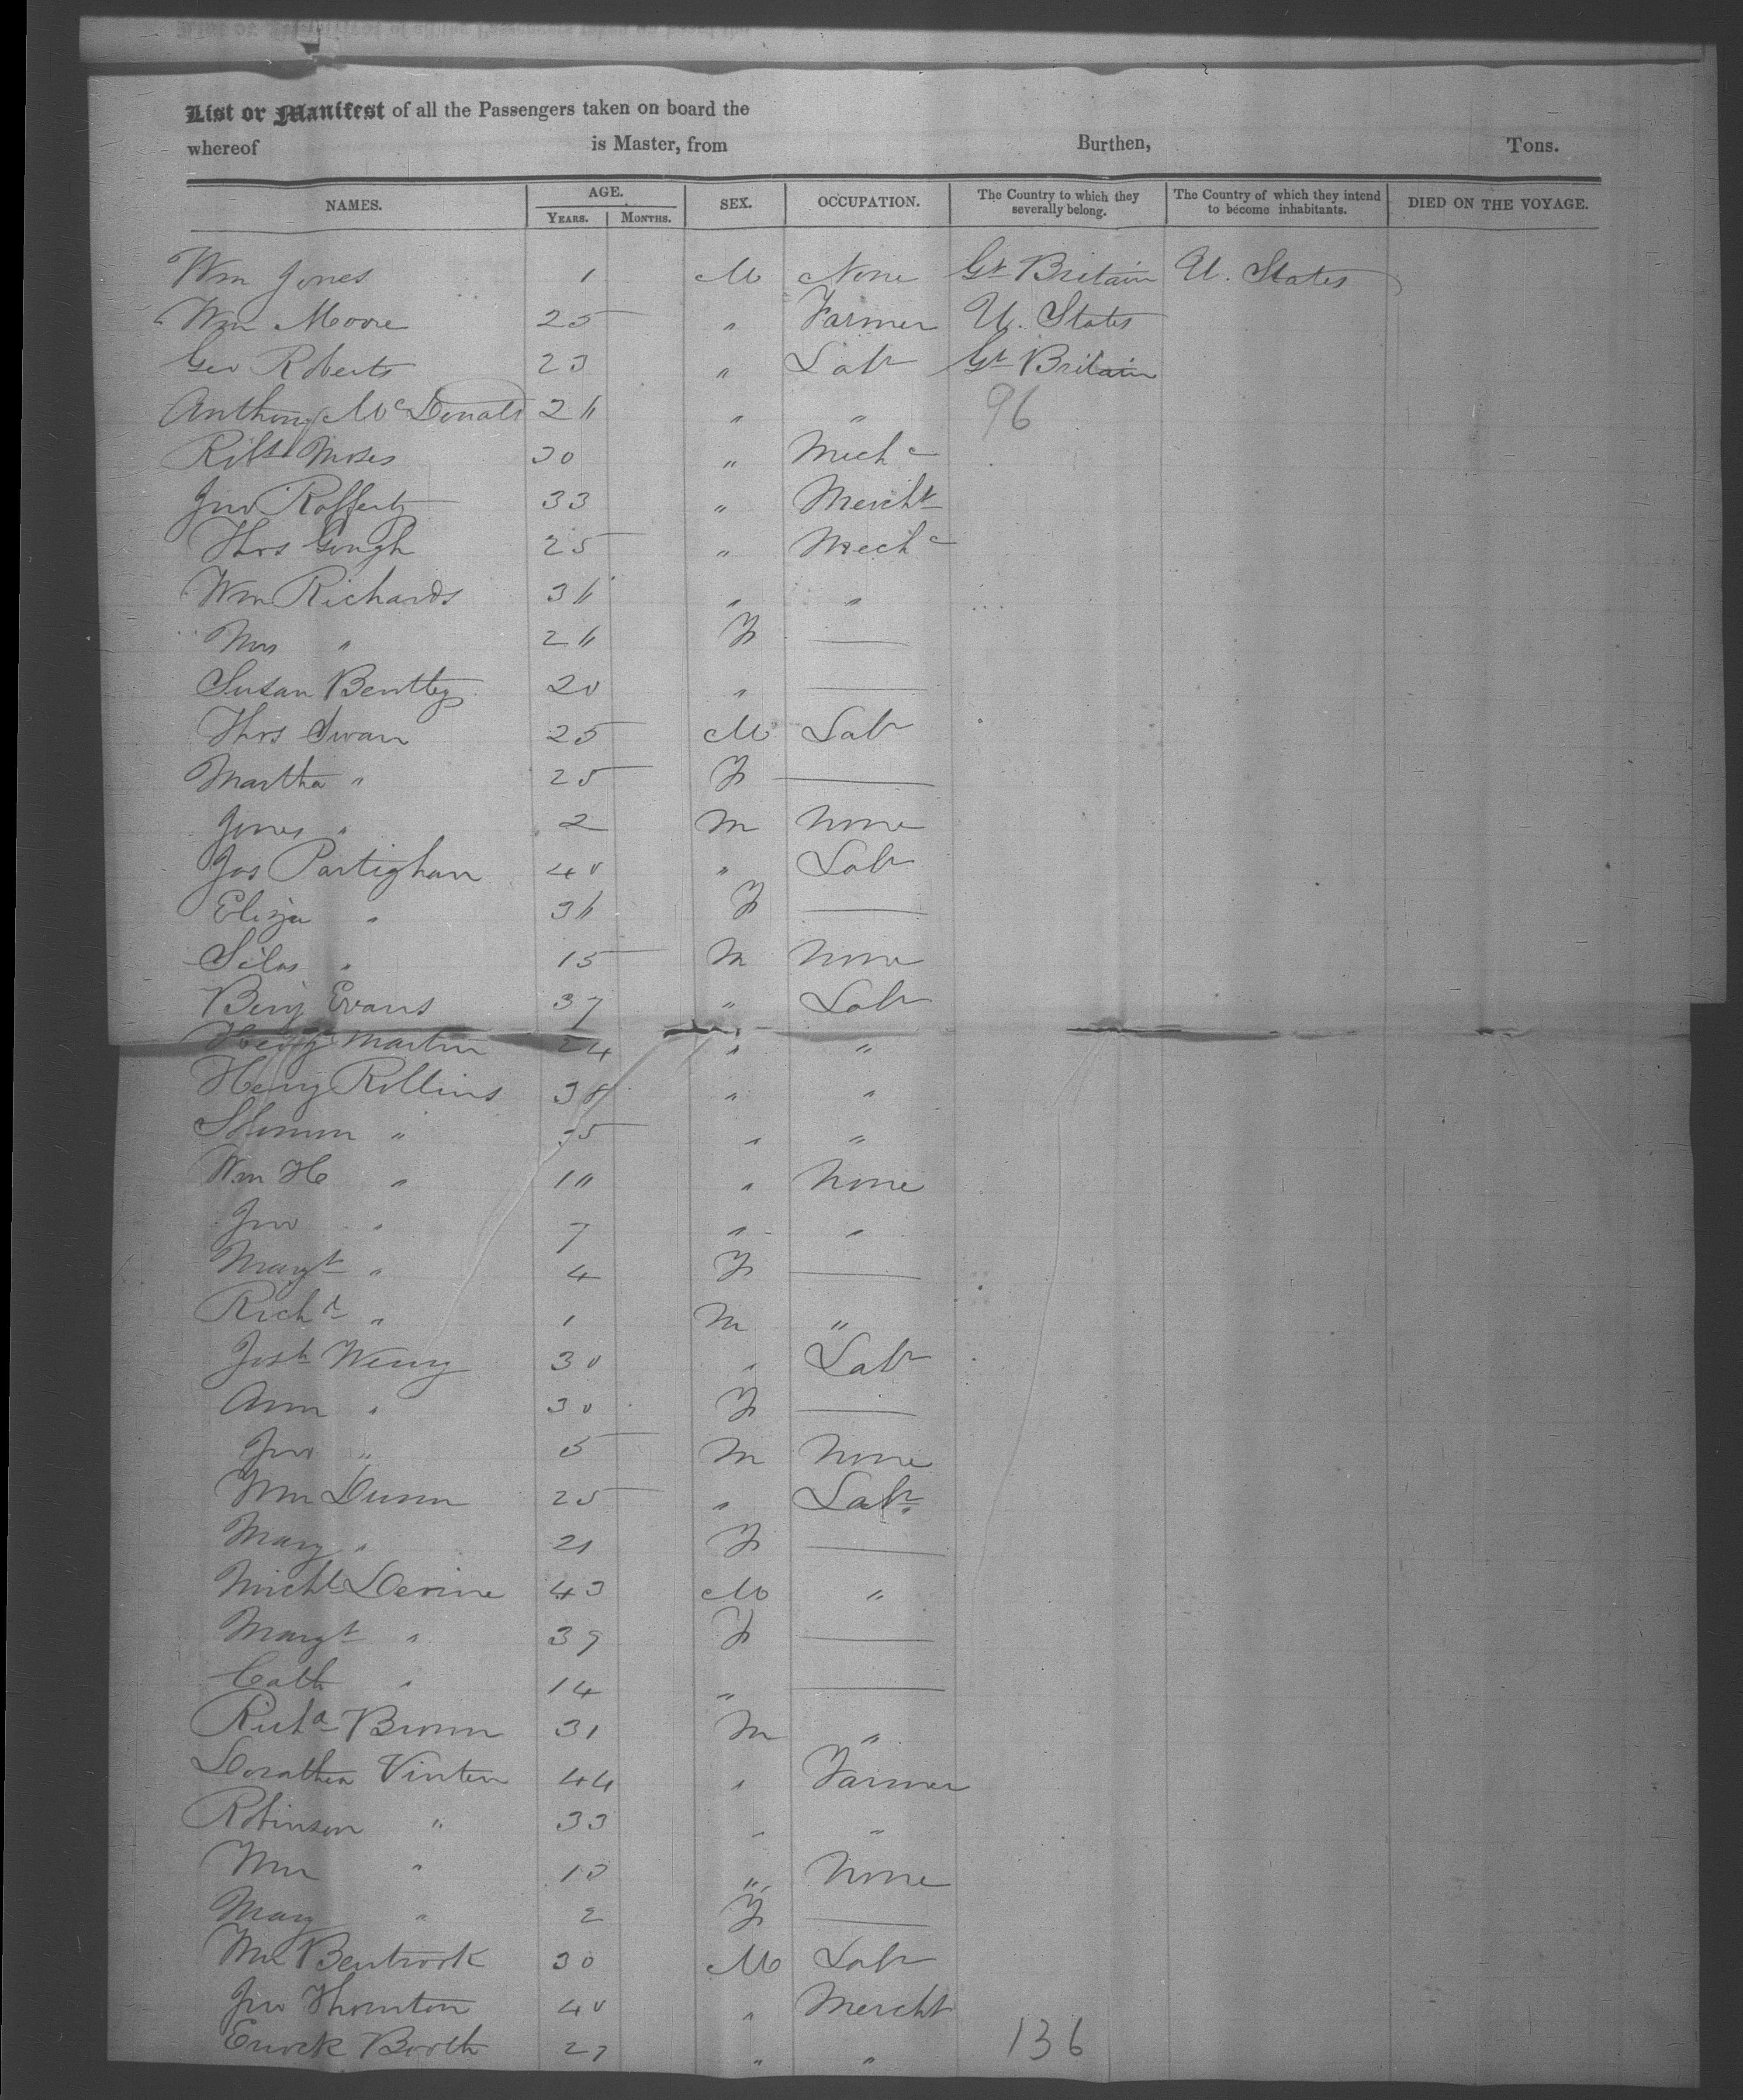 List or Manifest of all the Passengers taken on board the
whereof is Master, from Burthen, Tons.
NAMES. AGE. YEARS. MONTHS. SEX. OCCUPATION. The Country to which they severally belong. The Country of which they intend to become inhabitants. DIED ON THE VOYAGE.
Wm Jones 1 M None Gt Britain U. States
Wm Moore 25 " Farmer U. States
Geo Roberts 23 " Labr Gt Britain
Anthony McDonald 26 " " 96
Robt Moses 30 " Mechc
Jno Rafferty 33 " Mercht
Thos Gough 25 " Mechc
Wm Richards 36 " "
Mrs " 26 F —
Susan Bentley 20 " —
Thos Swan 25 M Labr
Martha " 25 F —
" 2 M None
Jos Partighan 40 " Labr
Eliza " 36 F —
Silas " 15 M None
Benj Evans 37 " Labr
Martin 24 " "
Henry Rollins 38 " "
" " "
Wm H " 10 " None
Jno " 7 " "
Margt " 4 F —
Richd " 1 M "
Josh 30 " Labr
Ann " 30 F —
Jno " 5 M None
Wm Dunn 25 " Labr
Mary " 21 F —
Michl Devine 43 M "
Margt " 39 F —
Cath " 14 " —
Richd Brown 31 M "
Vinten 44 " Farmer
Robinson " 33 " "
Wm " 10 " None
Mary " 2 F —
Wm Bentrook 30 M Labr
Jno Thornton 40 " Mercht
Enock Booth 27 " " 136